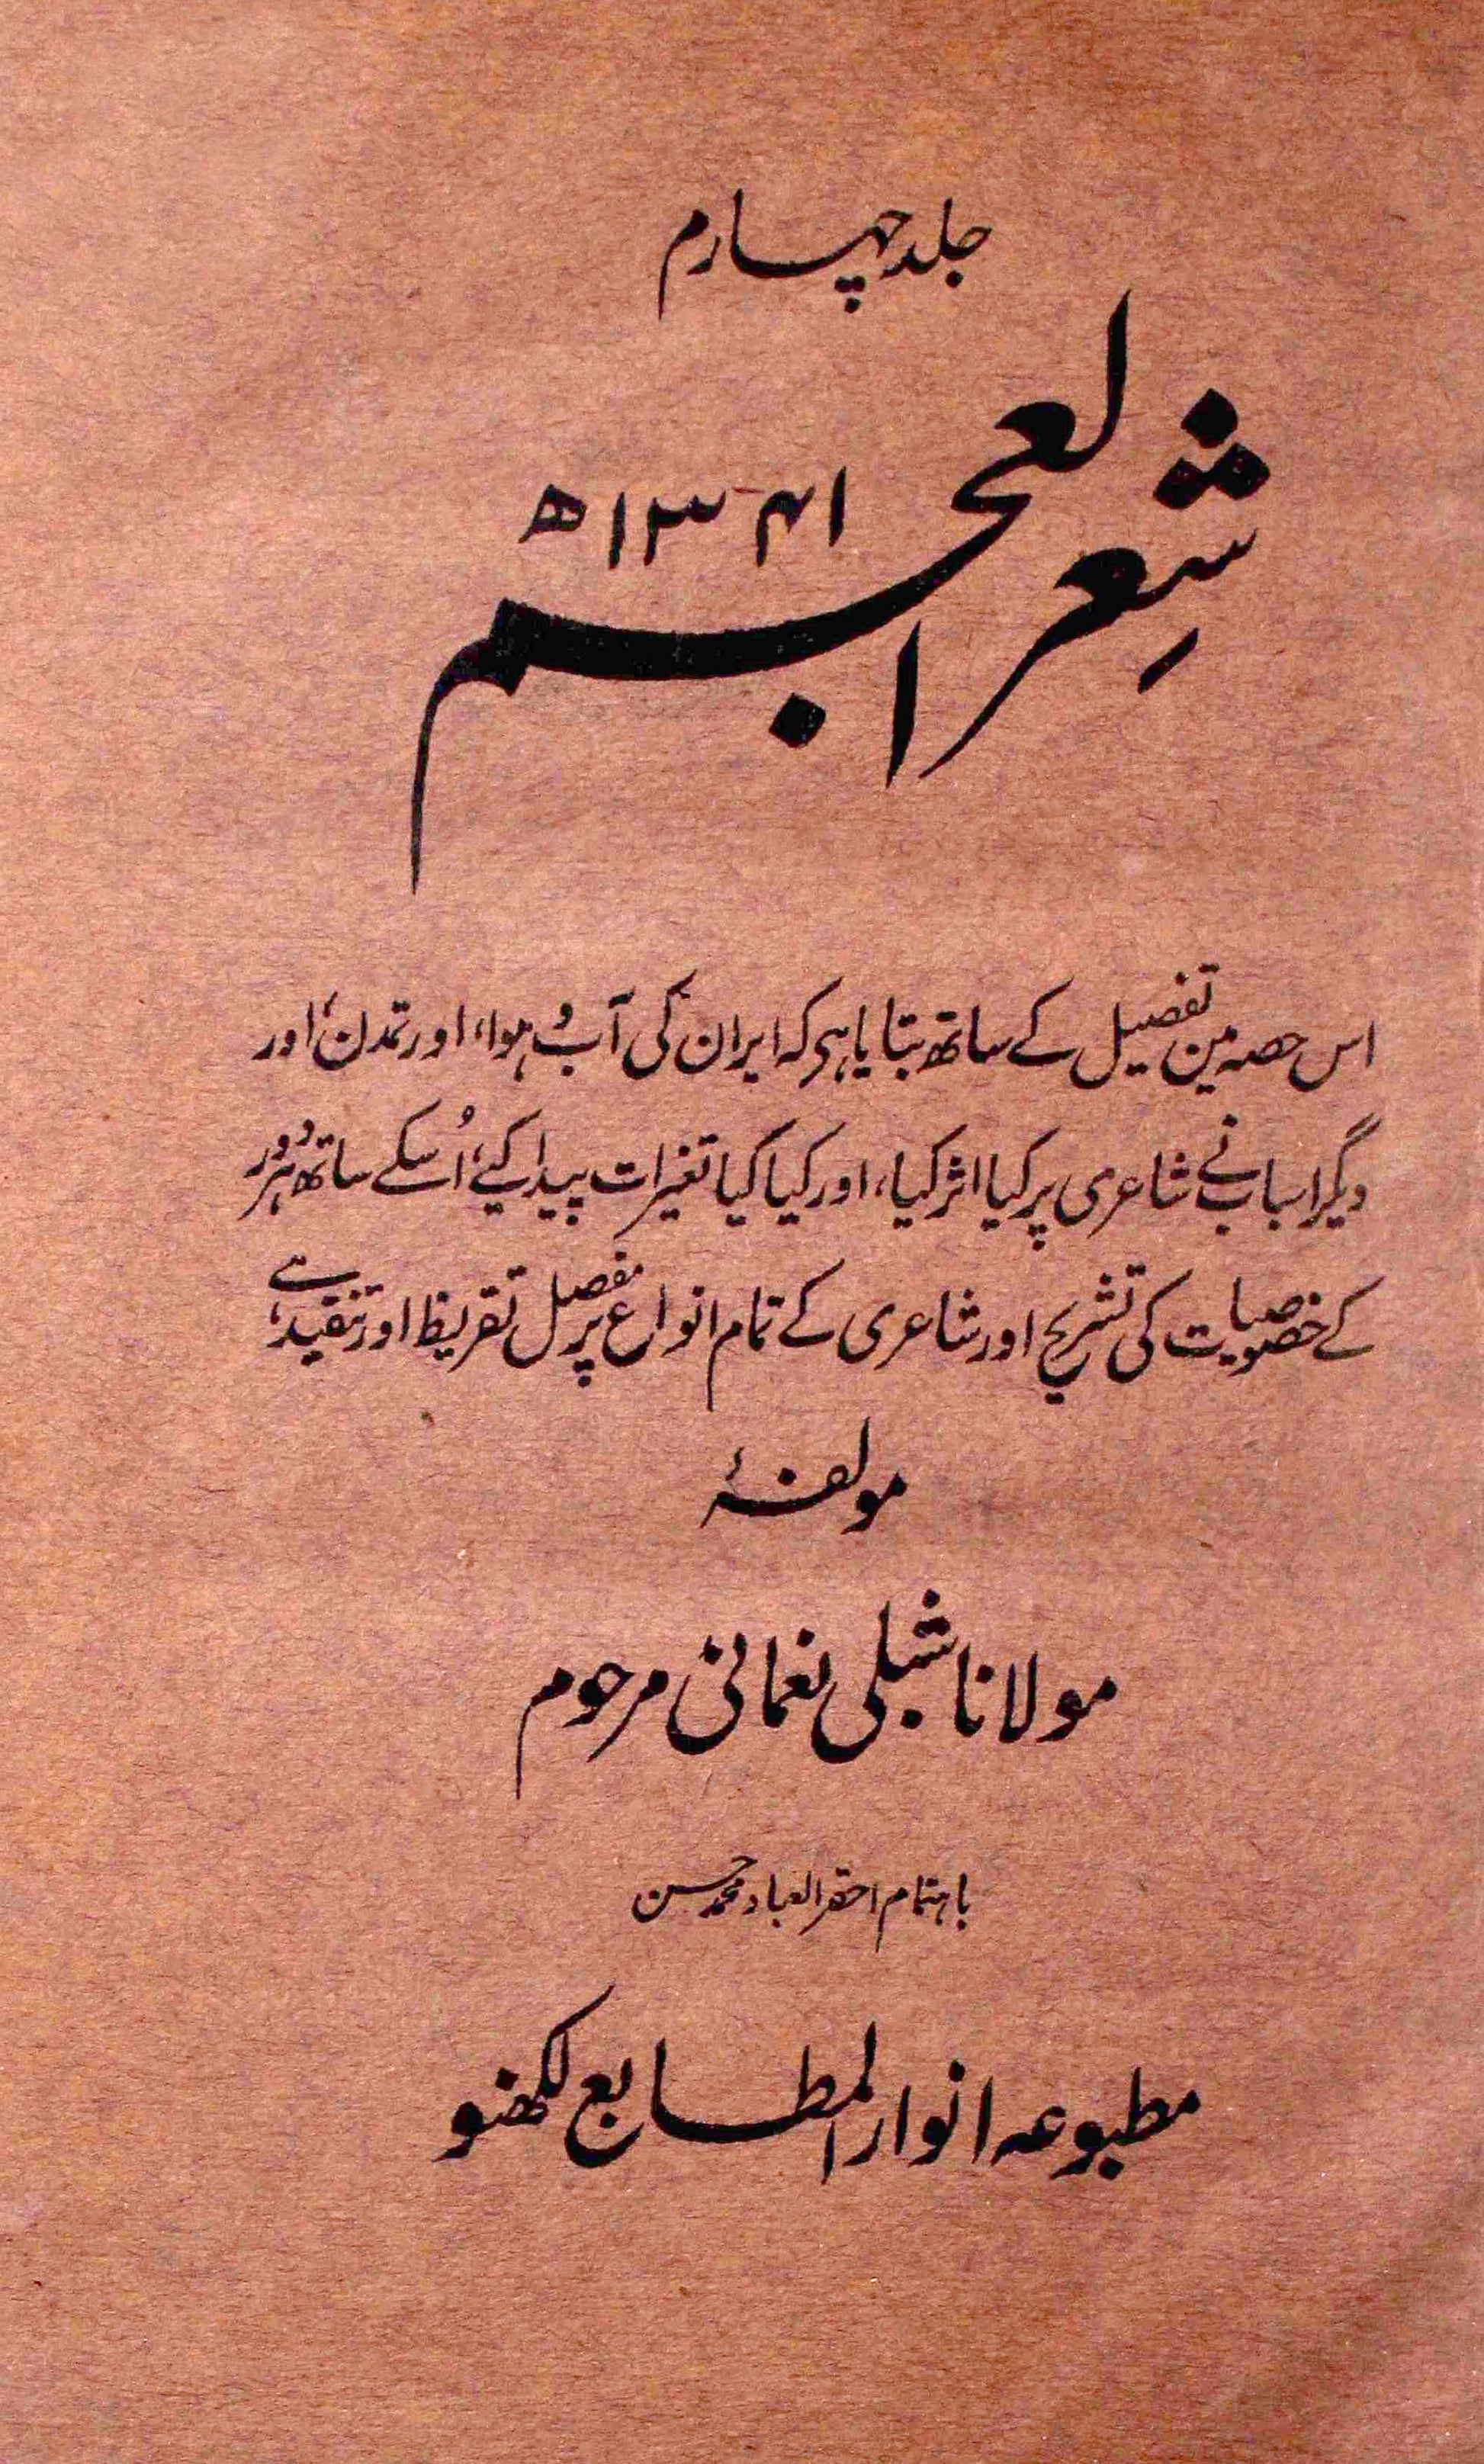 جلد چہارم
شعر العجم
۱۳۴۱ھ
اس حصہ مین تفصیل کے ساتھ بتایا ہی کہ ایران کی آب و ہوا، اور تمدن، اور
دیگر اسباب نے شاعری پر کیا اثر کیا، اور کیا کیا تغیرات پیدا کیے، اُسکے ساتھ ہر دور
کے خصوصیات کی تشریح اور شاعری کے تمام انواع پر مفصل تقریظ اور تنقید ہے،
مولفۂ
مولانا شبلی نعمانی مرحوم
باہتمام احقر العباد محمد حسن
مطبوعہ انوار المطابع لکھنو